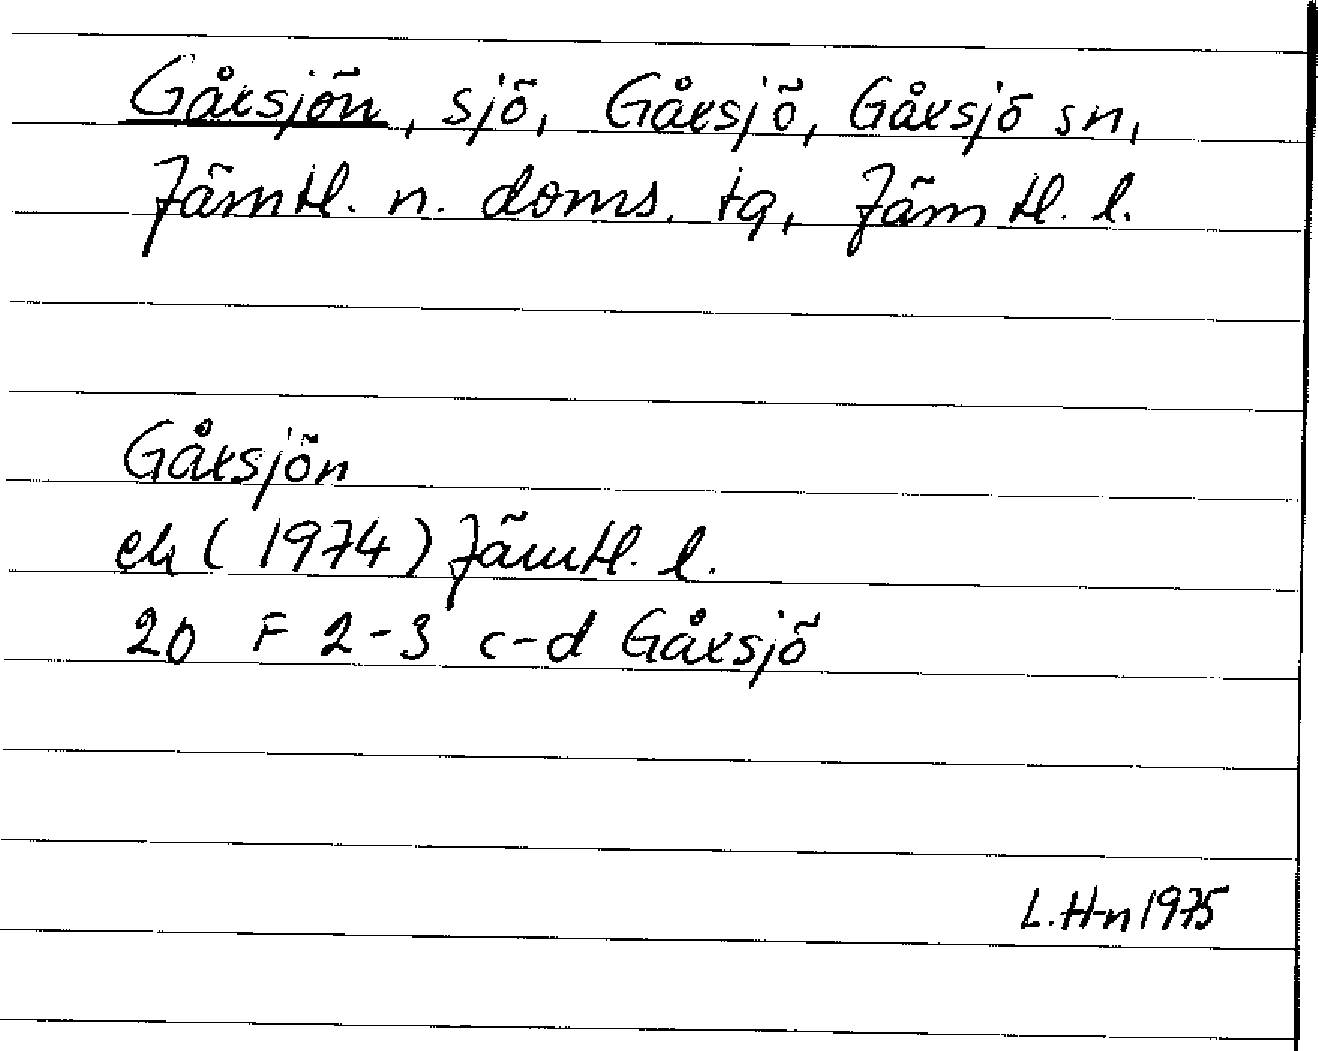 Gåxsjön, sjö, Gåxsjö, Gåxsjö sn,
Jämtl. n. doms. tg, Jämtl. l.
Gåxsjön
ek (1974) Jämtl. l.
20 F 2-3 c-d Gåxsjö
L.H-n 1975